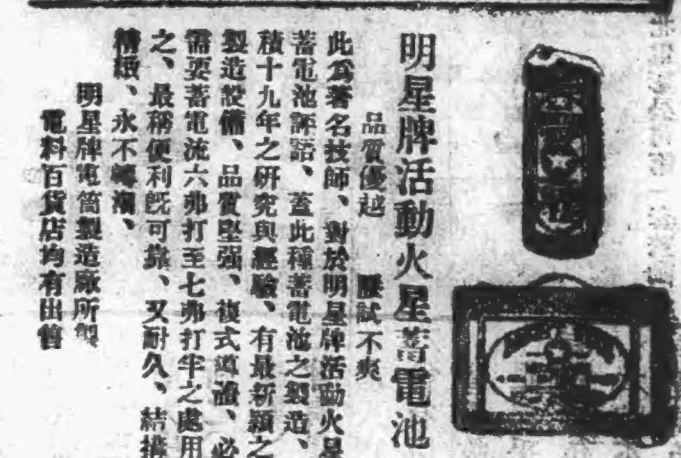 明星牌活動火星蓄電池
品質優越 屢試不爽
此為著名技師、對於明星牌活動火星
蓄電池評語、蓋此種蓄電池之製造、
積十九年之研究與經驗、有最新穎之
製造設備、品質堅强、複式導論、必
需要蓄電流六弗打至七弗打半之處用
之、最稱便利既可靠、又耐久、結構
精緻、永不
明星牌電筒製造廠所製
電料百貨店均有出售